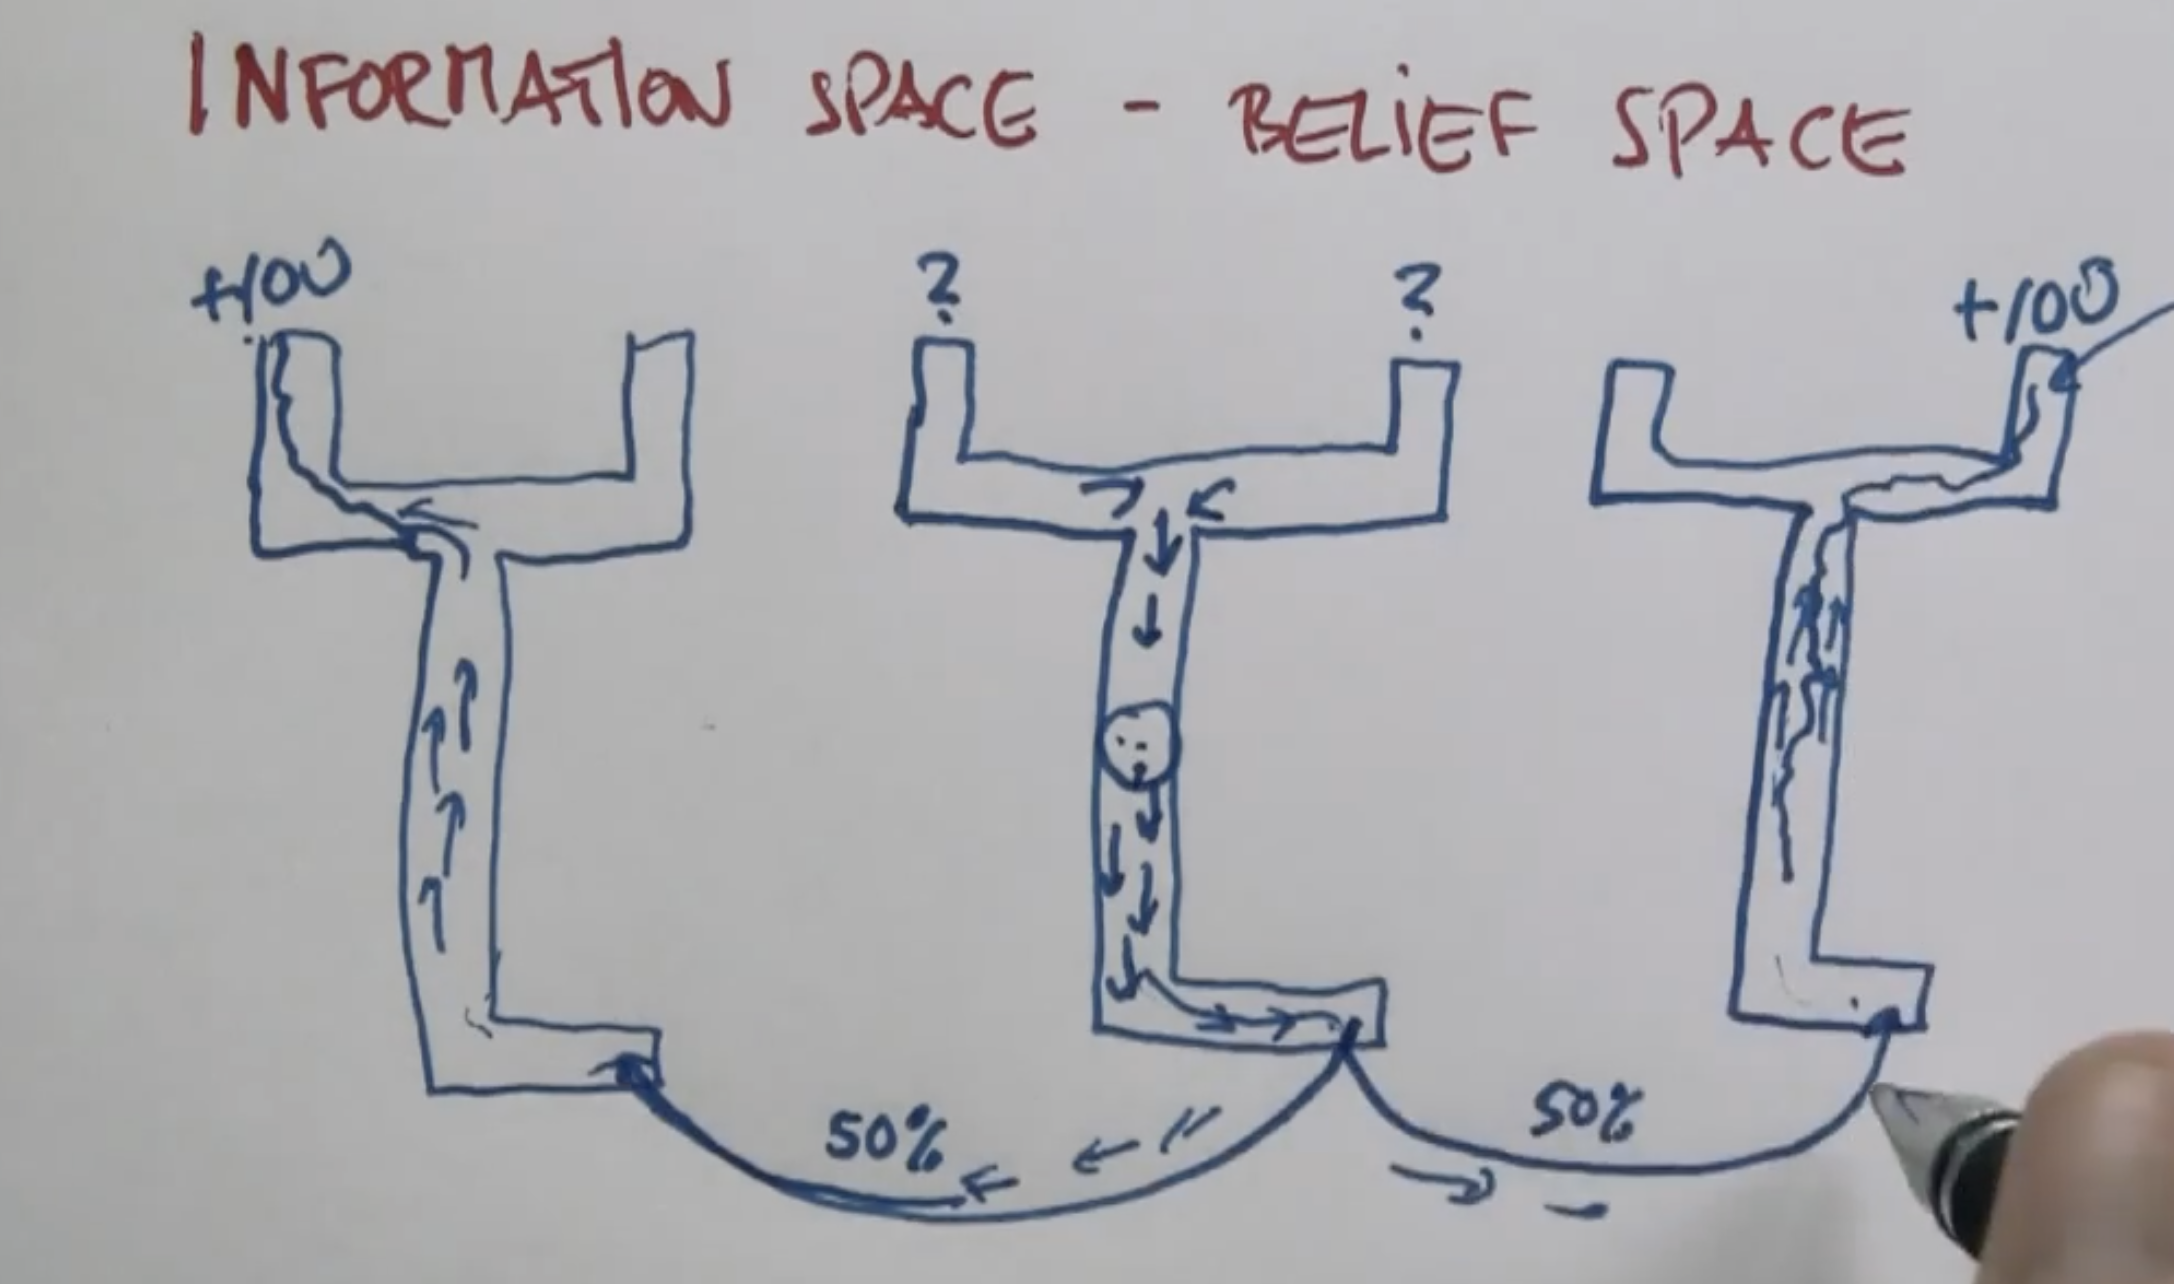 INFORMATION SPACE - BELIEF SPACE
+100 ? ? +100
50% 50%